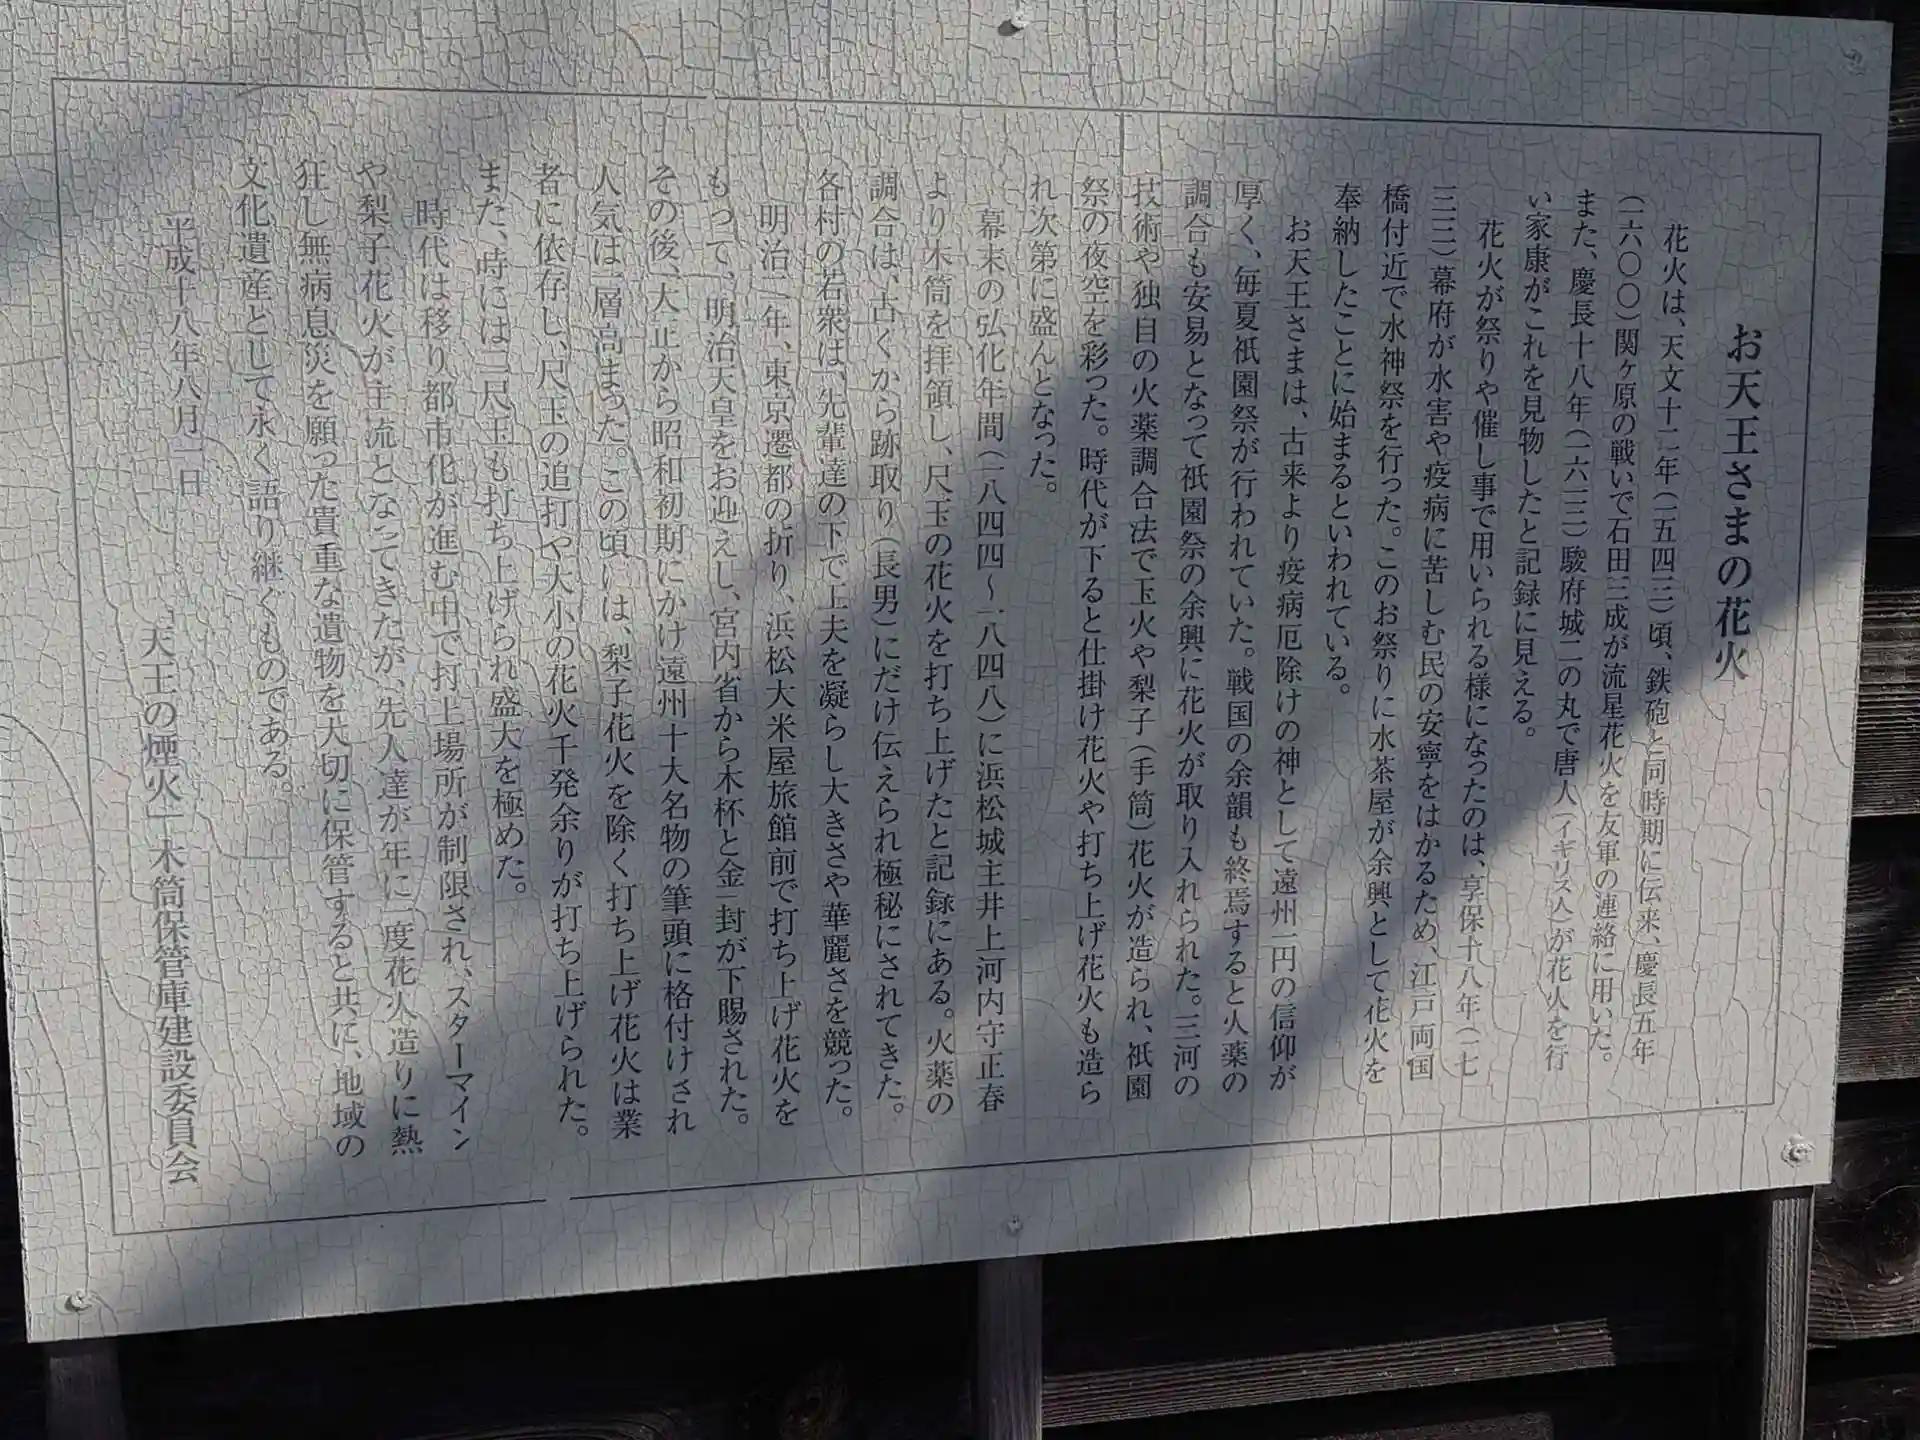 お天王さまの花火
花火は、天文十二年(一五四三)頃、鉄砲と同時期に伝来、慶長五年
(一六〇〇)関ヶ原の戦いで石田三成が流星花火を友軍の連絡に用いた。
また、慶長十八年(一六一三)駿府城二の丸で唐人(イギリス人)が花火を行
い家康がこれを見物したと記録に見える。
花火が祭りや催し事で用いられる様になったのは、享保十八年(一七
三三)幕府が水害や疫病に苦しむ民の安寧をはかるため、江戸両国
橋付近で水神祭を行った。このお祭りに水茶屋が余興として花火を
奉納したことに始まるといわれている。
お天王さまは、古来より疫病厄除けの神として遠州一円の信仰が
厚く、毎夏祇園祭が行われていた。戦国の余韻も終焉すると火薬の
調合も安易となって祇園祭の余興に花火が取り入れられた。三河の
技術や独自の火薬調合法で玉火や梨子(手筒)花火が造られ、祇園
祭の夜空を彩った。時代が下ると仕掛け花火や打ち上げ花火も造ら
れ次第に盛んとなった。
幕末の弘化年間(一八四四～一八四八)に浜松城主井上河内守正春
より木筒を拝領し、尺玉の花火を打ち上げたと記録にある。火薬の
調合は、古くから跡取り(長男)にだけ伝えられ極秘にされてきた。
各村の若衆は、先輩達の下で工夫を凝らし大きさや華麗さを競った。
明治一年、東京遷都の折り、浜松大米屋旅館前で打ち上げ花火を
もって、明治天皇をお迎えし、宮内省から木杯と金一封が下賜された。
その後、大正から昭和初期にかけ遠州十大名物の筆頭に格付けされ
人気は一層高まった。この頃には、梨子花火を除く打ち上げ花火は業
者に依存し、尺玉の追打や大小の花火千発余りが打ち上げられた。
また、時には二尺玉も打ち上げられ盛大を極めた。
時代は移り都市化が進む中で打上場所が制限され、スターマイン
や梨子花火が主流となってきたが、先人達が年に一度花火造りに熱
狂し無病息災を願った貴重な遺物を大切に保管すると共に、地域の
文化遺産として永く語り継ぐものである。
平成十八年八月一日
「天王の煙火」木筒保管庫建設委員会